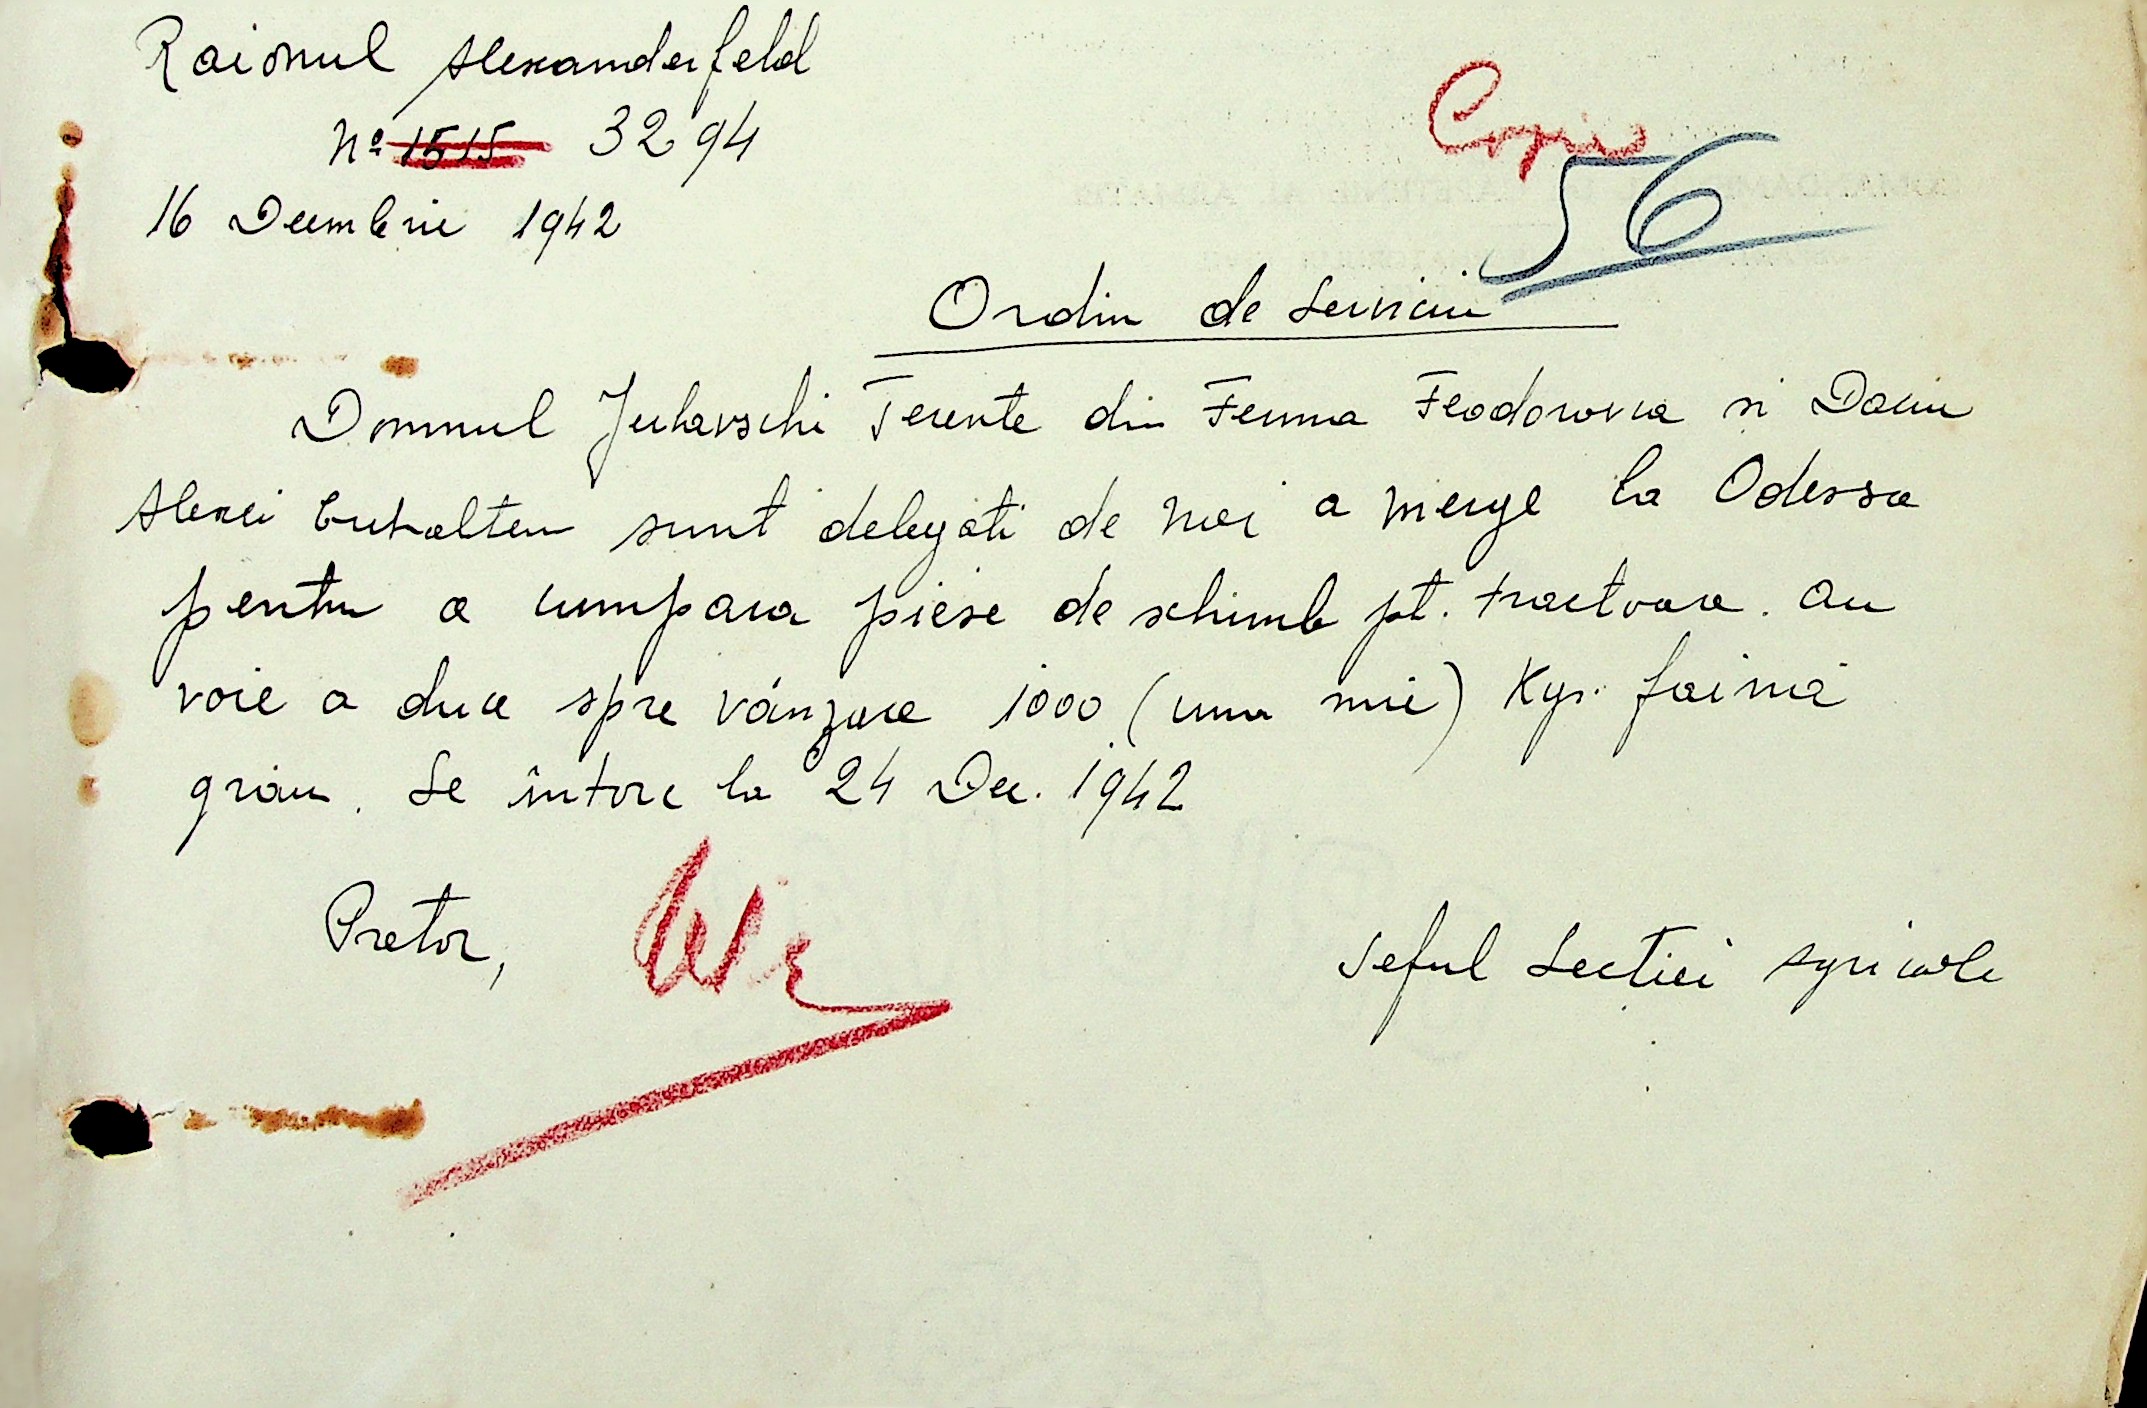 Raionul Alexanderfeld
Copie
Nº 1515 3294
56
16 Decembrie 1942
Ordin de Serviciu
Domnul Juhavschi Terente din Ferma Feodorovca si Daciu
Alexei sunt delegati de noi a merge la Odessa
pentru a cumpara piese de schimb pt. tractoare. au
voie a duce spre vânzare 1000 (una mie) Kgr. faină
grâu. Se întorc la 24 Dec. 1942
Pretor,
Seful Sectiei Agricole